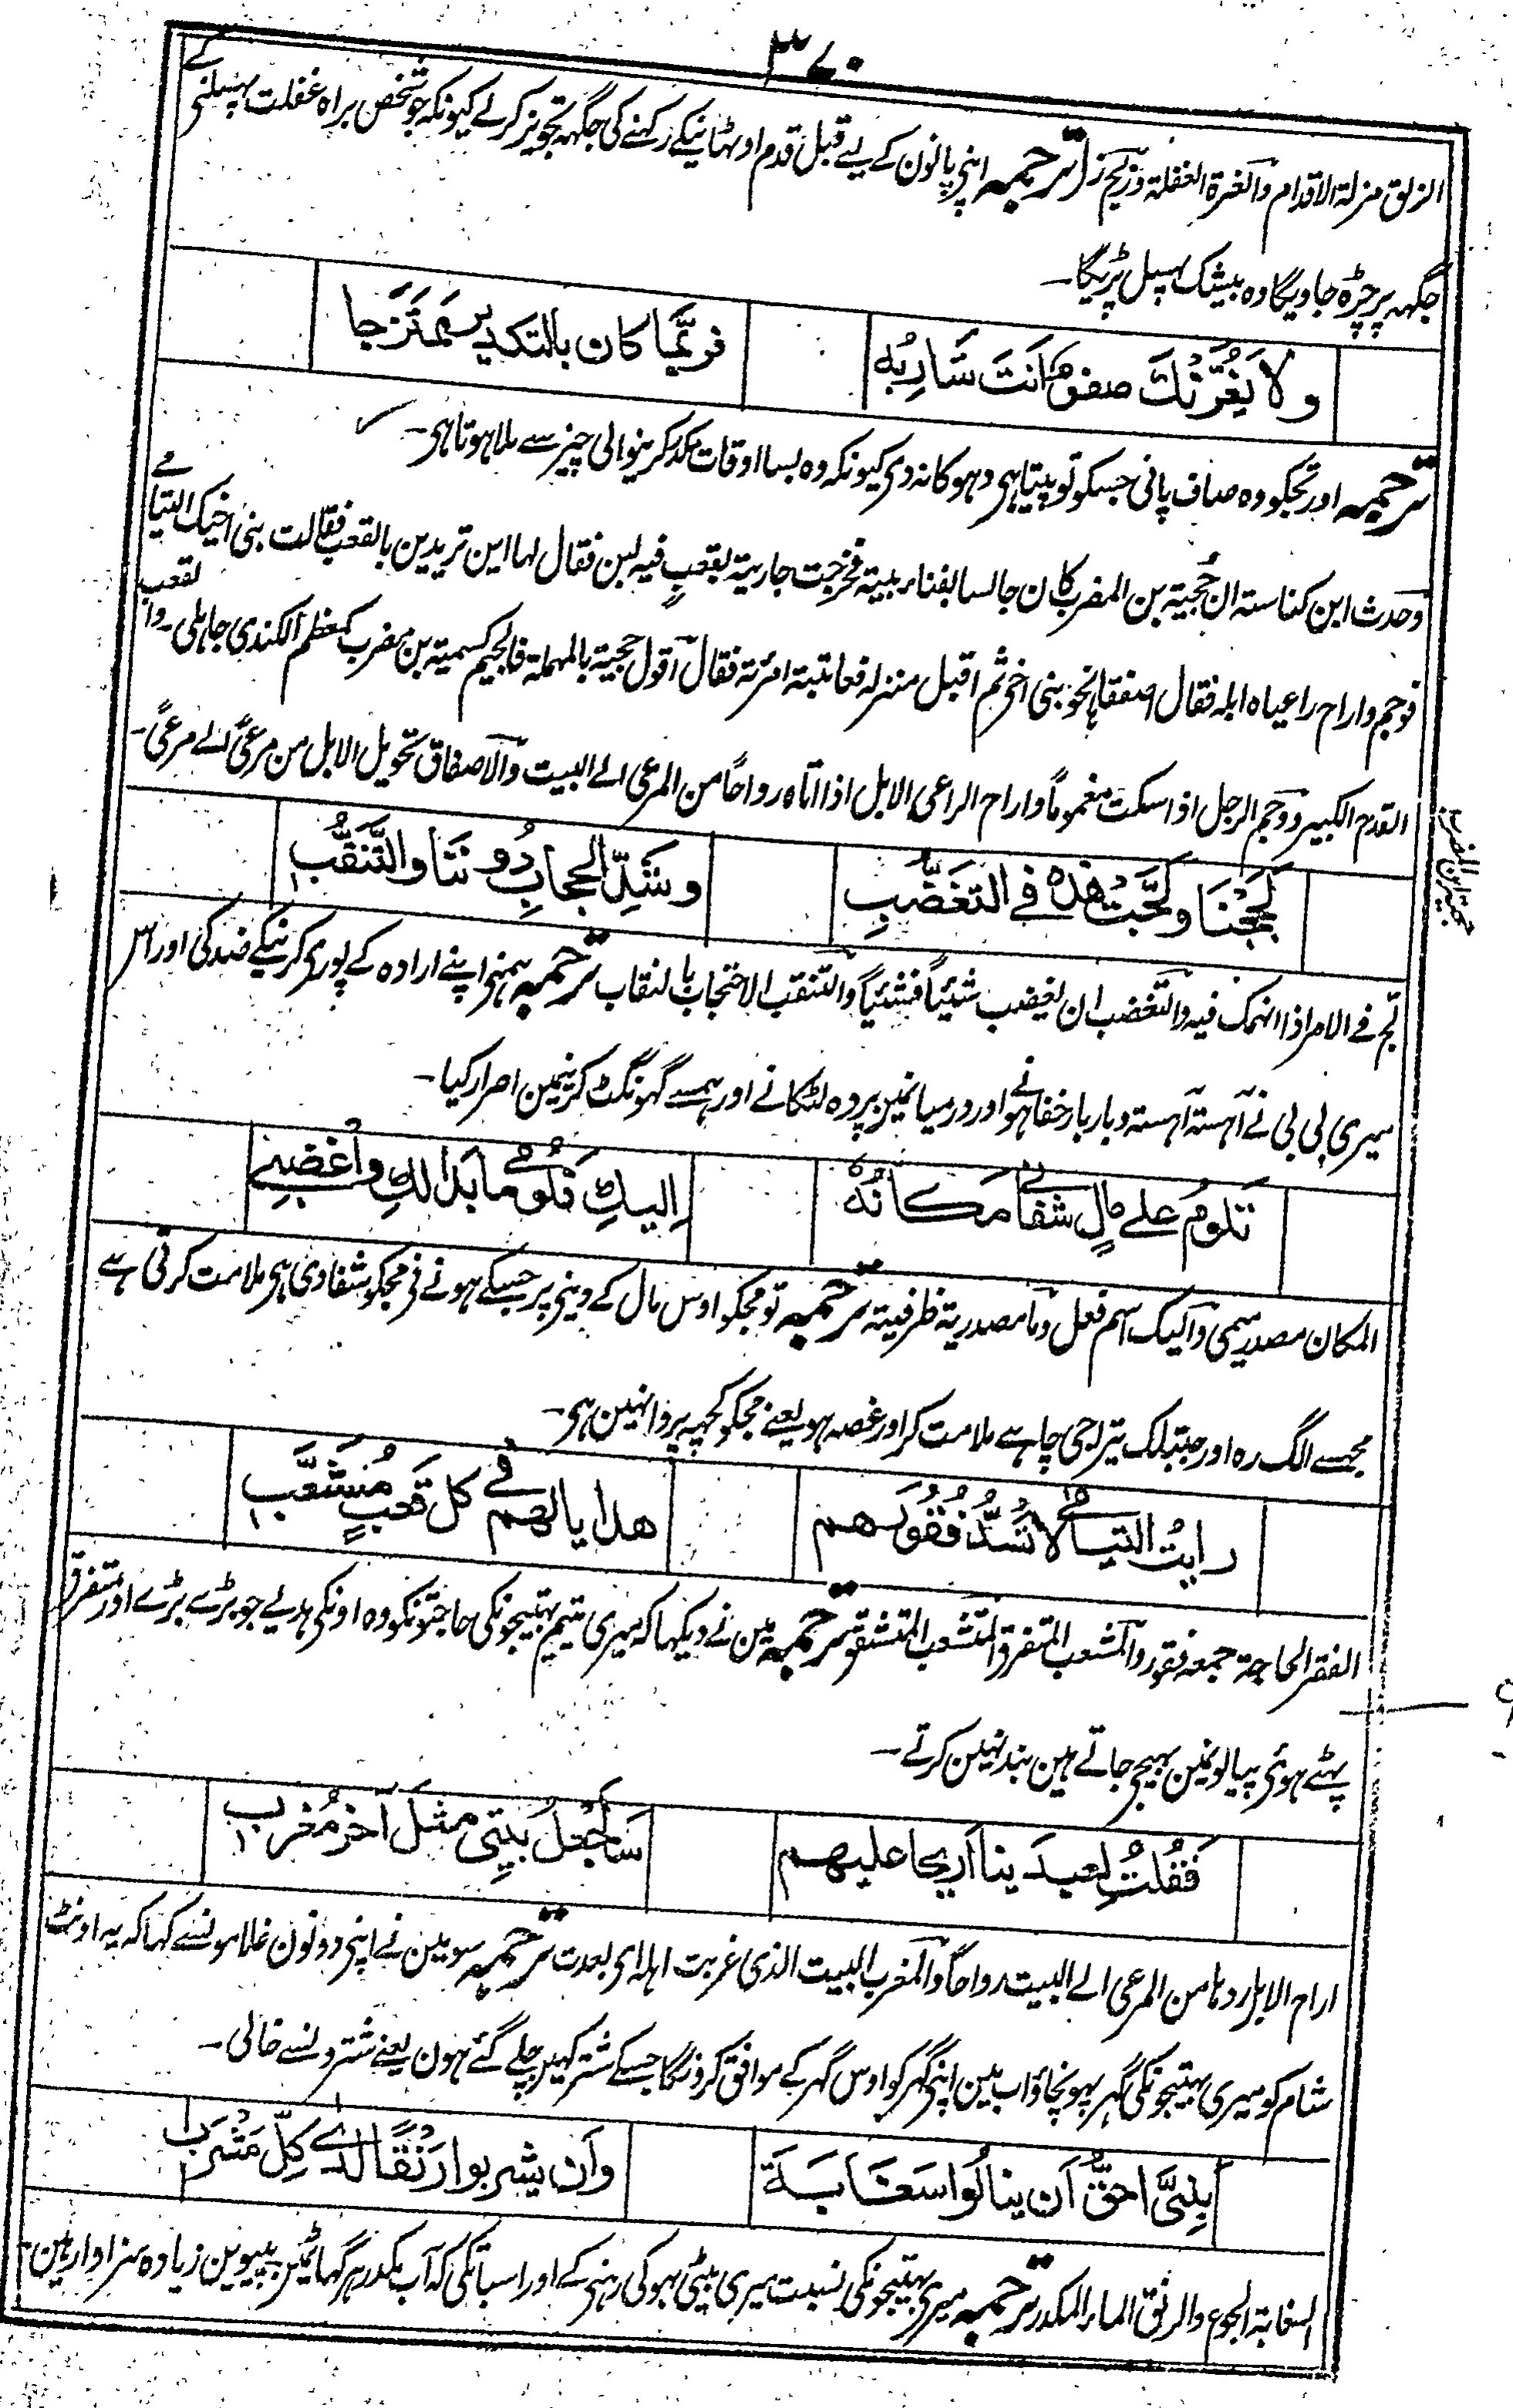 ٣٧٠
الزلق منزلة الاقدام والغرة الغفلة وزلج زل ترجمہ اپنی پانون کے لیے قبل قدم اوٹہانیکے رکہنے کی جگہہ تجویز کرلے کیونکہ جو شخص براہ غفلت پہسلنے کے
جگہہ پر چڑہ جاویگا وہ بیشک پہسل پڑیگا۔
ولا يغرنك صفو انت شاربه فربما كان بالتكدير ممتزجا
ترجمہ اور تجکو وہ صاف پانی جسکو تو پیتا ہی دہوکا نہ دی کیونکہ وہ بسا اوقات مکدر کرنیوالی چیز سے ملا ہوتا ہی۔
وحدث ابن كناسة ان حجية بن المضرب كان جالسا بفناء بيته فخرجت جارية بقعب فيه لبن فقال لها اين تريدين بالقعب فقالت بنى اخيك اليتامى
فوجم واراح راعياه ابله فقال اصفقاها نحو بنى اخى ثم اقبل منزله فعاتبته امرئته فقال آقول حجية بالمهملة فالجيم كسمية بن مضرب كمعظم الكندى جاهلى۔ والقعب
القدح الكبير ووجم الرجل اذا سكت مغموماً واراح الراعى الابل اذا اتاه رواحاً من المرعى الے البيت والاصفاق تحويل الابل من مرعىً الے مرعىً۔
حجية ابن المضرب
لججنا ولجت هذه في التغضب وشد الحجاب دوننا والتنقب
لج فے الامر اذا انهمك فيه والتغضب ان يغضب شيئاً فشيئاً والتنقب الاحتجاب بالنقاب ترجمہ ہمنی اپنے ارادہ کے پوری کرنیکے ضد کی اور اس
میری بی بی نے آہستہ آہستہ و بار بار خفا ہونے اور درمیانمین پردہ لٹکانے اور ہمسے گہونگٹ کرنیمین اصرار کیا۔
تلوم على مال شفانى مكانه اليك فلومي ما بدا لك واغضبي
المكان مصدر ميمى واليك اسم فعل وما مصدرية ظرفية ترجمہ تو مجکو اوس مال کے دینی پر جسکے ہونے نی مجکو شفا دی ہی ملامت کرتی ہے
مجسے الگ رہ اور جبتلک تیرا جی چاہے ملامت کر اور غصہ ہو یعنے مجکو کچہہ پروا نہین ہی۔
رايت اليتامى لا تسد فقورهم هدايا لهم في كل قعب مشعب
الفقر الحاجة جمعه فقور والمشعب المتفرق المتشعب المتشقق ترجمہ مین نے دیکہا کہ میری یتیم بہتیجونکی حاجتونکو وہ اونکی ہدئیے جو بڑے بڑے اور متفرق
پہٹے ہوئی پیالونمین بہیجی جاتے ہین بند نہین کرتے۔
فقلت لعبدينا اريحا عليهم ساجعل بيتي مثل آخر مغرب
اراح الابل ردها من المرعى الے البيت رواحاً والمغرب البيت الذى غربت اہلہ اى بعدت ترجمہ سو مین نے اپنی دونون غلامونسے کہا کہ یہ اونٹ
شام کو میری بہتیجونکی گہر پہونچاؤ اب مین اپنی گہر کو اوس گہر کے موافق کرونگا جسکے شتر کہین چلے گئے ہون یعنے شترونسے خالی۔
بني احق ان ينالوا سغابة وان يشربوا رنقا لدى كل مشرب
السغابة الجوع والرنق الماء المكدر ترجمہ میری بہتیجونکی نسبت میری بیٹی بہوکی رہنی کے اور اسباتکی کہ آب مکدر ہر گہاٹمین پیوین زیادہ سزاوار ہین۔